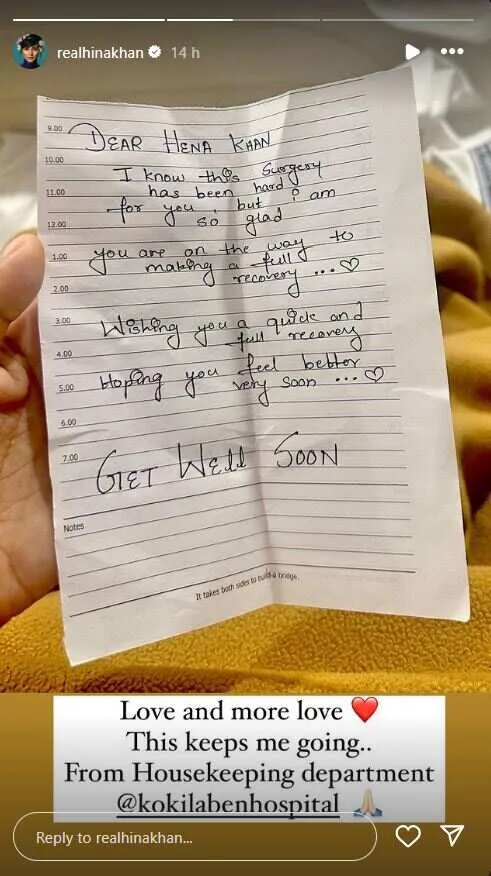 realhinakhan 14 h
9.00
DEAR HENA KHAN
10.00
I know this surgery
11.00
has been hard
for you, but I am
12.00
so glad
1.00
you are on the way to
making a full
recovery ... ♡
2.00
3.00
Wishing you a quick and
full recovery
4.00
Hoping you feel better
5.00
very soon ... ♡
6.00
7.00
GET WELL SOON
Notes
It takes both sides to build a bridge.
Love and more love ❤️
This keeps me going..
From Housekeeping department
@kokilabenhospital 🙏🏻
Reply to realhinakhan...